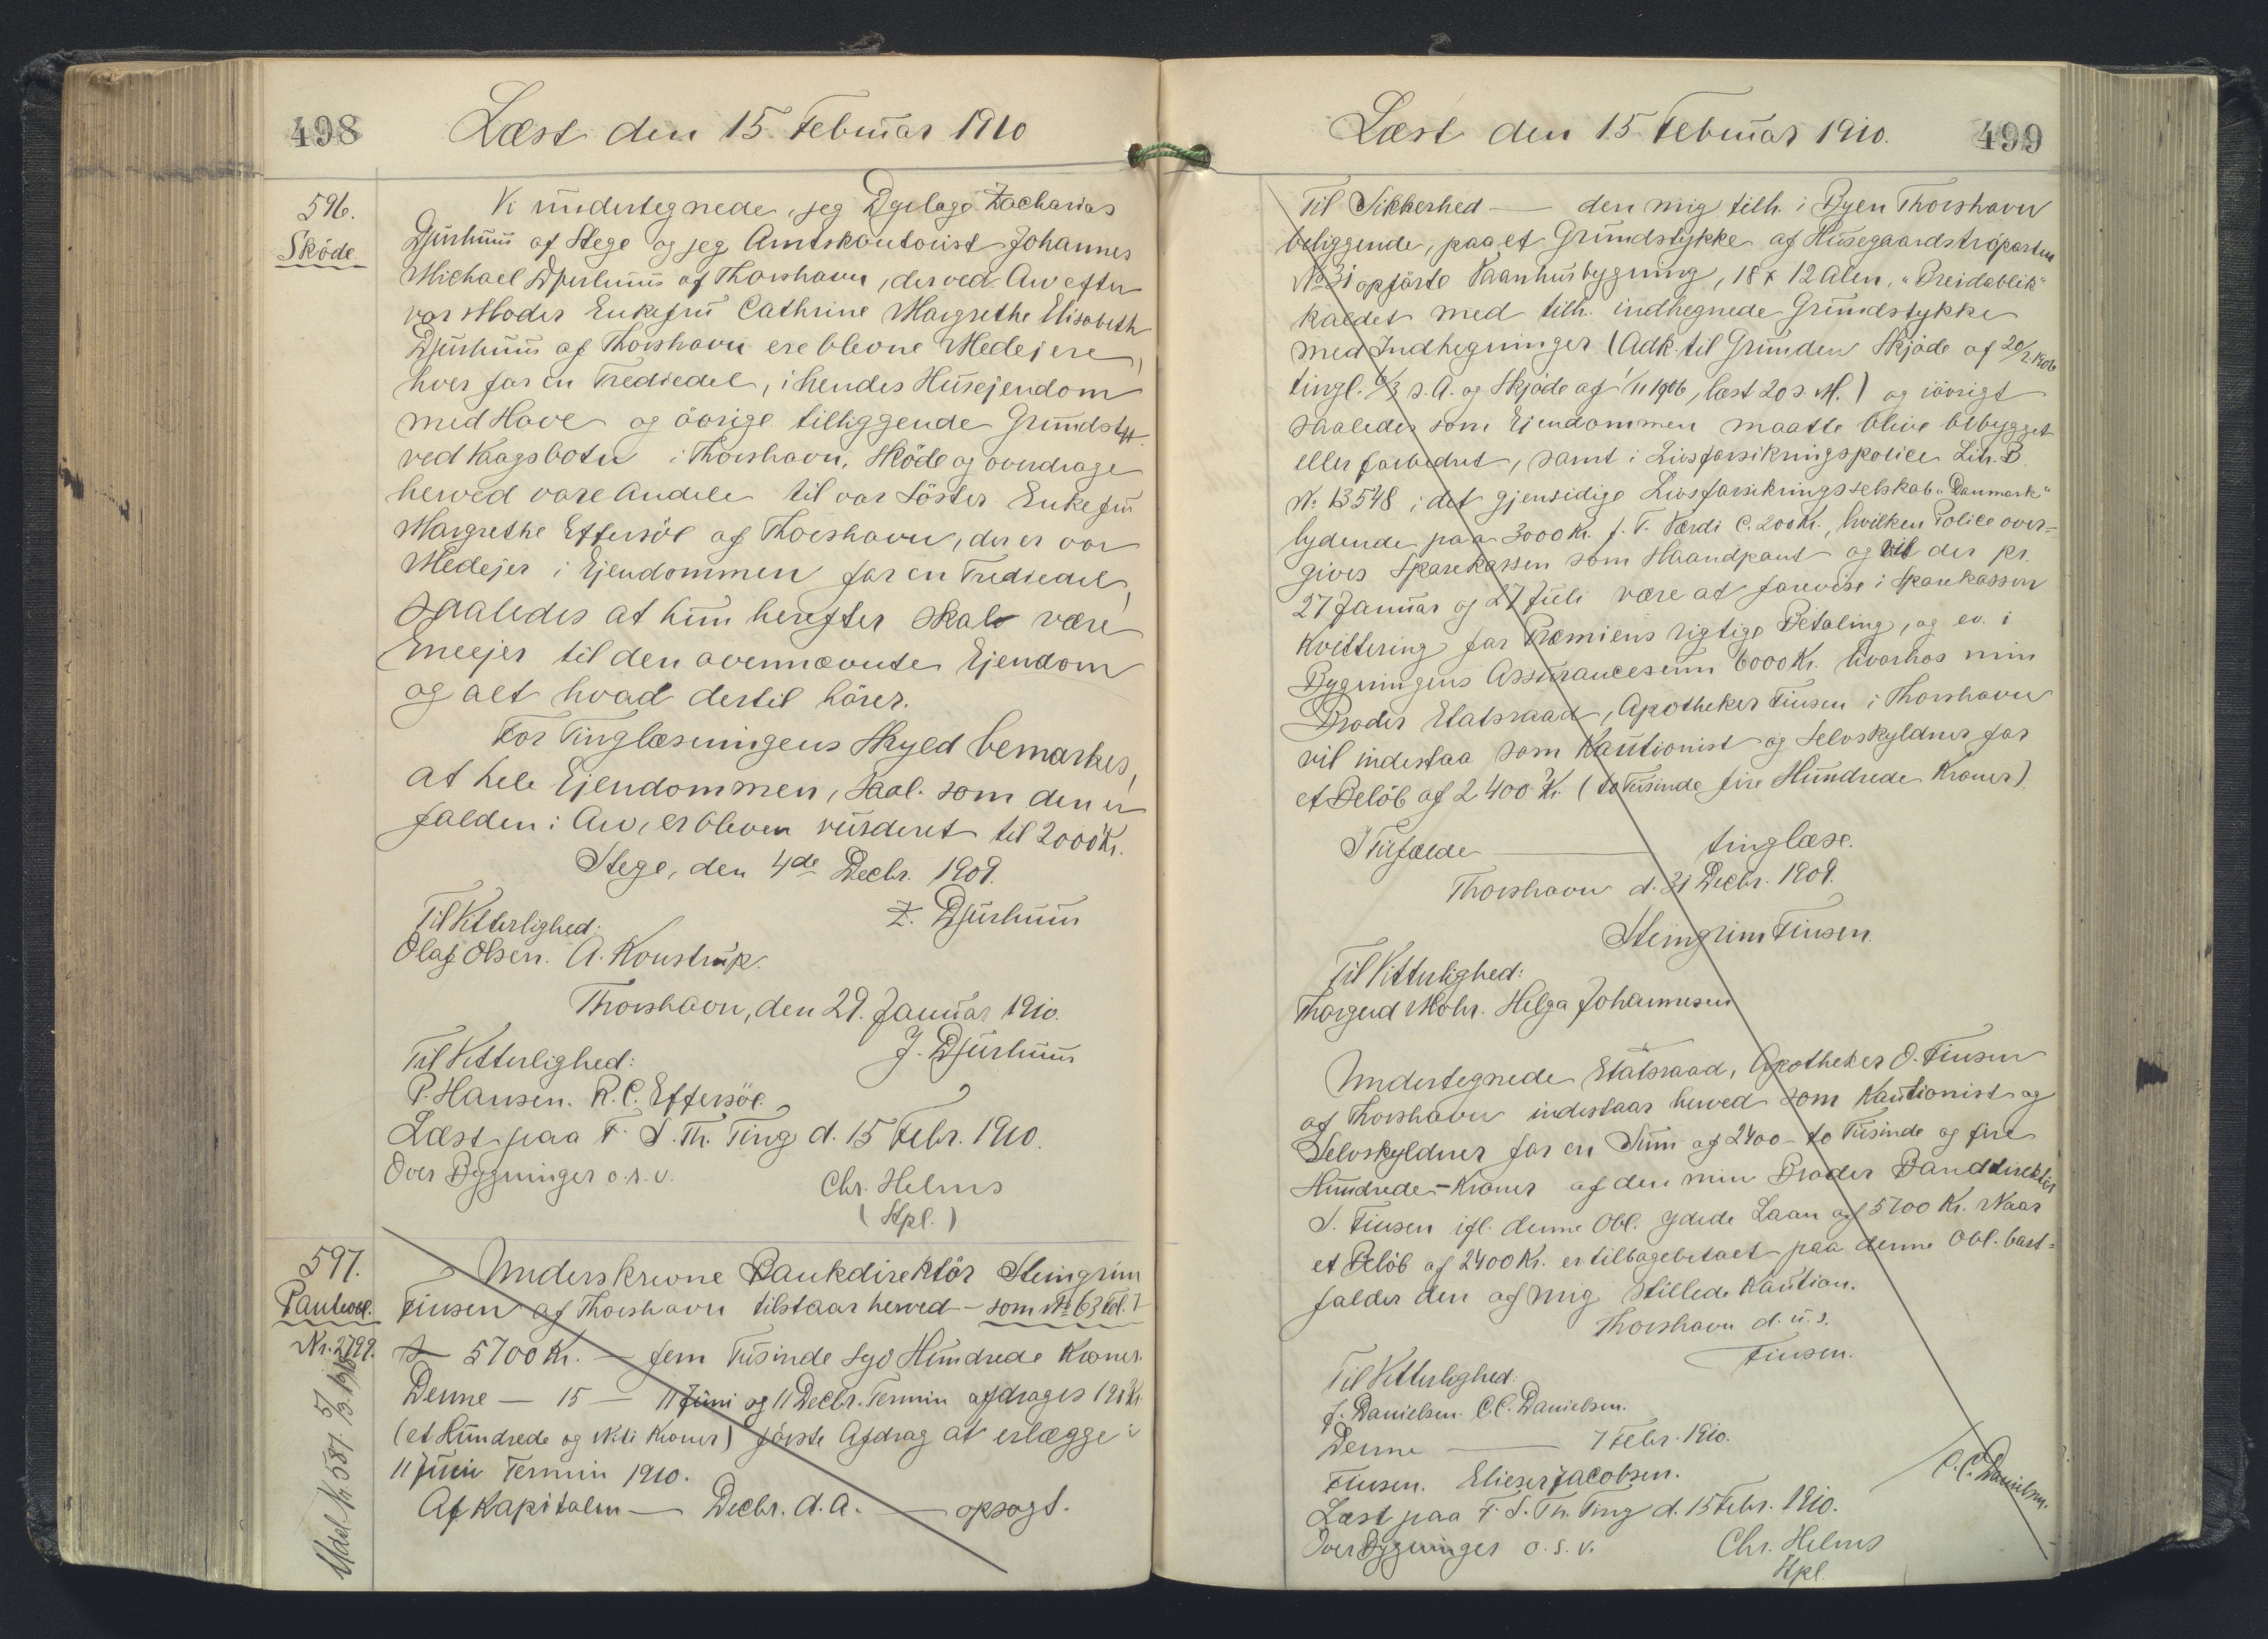 498
Læst den 15. Februar 1910
596.
Skøde
Vi undertegnede, jeg Dyrlæge Zacharias
Djurhuus af Stege og jeg Amtskontorist Johannes
Michael Djurhuus af Thorshavn, der ved Arv efter
vor Moder Enkefru Cathrine Margrethe Elisabeth
Djurhuus af Thorshavn ere blevne Medejere,
hver for en Trediedel, i hendes Husejendom
med Have og övrige tilliggende Grundst.
ved Vaagsbotn i Thorshavn, Sköde og overdrage
herved vore Andele til vor Söster Enkefru
Margrethe Effersöe af Thorshavn, der er vor
Medejer i Ejendommen for en Trediedel,
saaledes at hun herefter skal være
Eneejer til den ovennævnte Ejendom
og alt hvad dertil hörer.
For Tinglæsningens Skyld bemærkes,
at hele Ejendommen, saal. som den er
falden i Arv, er bleven vurderet til 2000 Kr.
Stege, den 4de Decbr. 1909.
Z. Djurhuus
Til Vitterlighed:
Olaf Olsen. A. Konstrup.
Thorshavn, den 29. Januar 1910.
J. Djurhuus
Til Vitterlighed:
P. Hansen. R. C. Effersöe.
Læst paa F. S. Th. Ting d. 15 Febr. 1910.
Over Bygninger o. s. v.
Chr. Helms
(Kpl.)
597.
Panteobl.
Nr. 2799.
Udsl. Nr. 581 5/3 1918
Underskrevne Bankdirektör Steingrim
Finsen af Thorshavn tilstaar herved – som No 63 Fol. 7
5700 Kr. – fem Tusinde syv Hundrede Kroner.
Denne — 15 — 11 Juni og 11 Decbr. Termin afdrages 190 Kr.
(et Hundrede og Niti Kroner) förste Afdrag at erlægge i
11 Juni Termin 1910.
Af Kapitalen — Decbr. d. A. — opsagt.
Læst den 15 Februar 1910.
499
Til Sikkerhed — den mig tilh. i Byen Thorshavn
beliggende, paa et Grundstykke af Husegaardströparten
No 31 opförte Vaanhusbygning, 18 x 12 Alen, "Breidablik"
kaldet med tilh. indhegnede Grundstykke
med Indhegninger (Adk. til Grunden Skjöde af 20/2 1906
tingl. 6/3 s. A. og Skjöde af 1/11 1906, læst 20 s. M.) og iövrigt
saaledes som Ejendommen maatte blive bebygget
eller forbedret, samt i Livsforsikringspolice Litr. B.
No. 13548 i det gjensidige Livsforsikringsselskab "Danmark"
lydende paa 3000 Kr. f. T. Værdi C. 200 Kr., hvilken Police over-
gives Sparekassen som Haandpant og vil der pr.
27 Januar og 27 Juli være at forevise i Sparekassen
Kvittering for Præmiens rigtige Betaling, og ev. i
Bygningens Assurancesum 6000 Kr. hvorhos min
Broder Etatsraad, Apotheker Finsen i Thorshavn
vil indestaa som Kautionist og Selvskyldner for
et Belöb af 2400 Kr. (to Tusinde fire Hundrede Kroner).
I Tilfælde — tinglæse.
Thorshavn d. 31 Decbr. 1909.
Steingrim Finsen.
Til Vitterlighed:
Thorgerd Mohr. Helga Johannesen
Undertegnede Etatsraad, Apotheker O. Finsen
af Thorshavn indestaar herved som Kautionist og
Selvskyldner for en Sum af 2400 – to Tusinde og fire
Hundrede – Kroner af den min Broder Bankdirektör
S. Finsen ifl. denne Obl. ydede Laan af 5700 Kr. Naar
et Belöb af 2400 Kr. er tilbagebetalt paa denne Obl. bort-
falder den af mig stillede Kaution.
Thorshavn d. u. s.
Finsen.
Til Vitterlighed:
J. Danielsen. C. C. Danielsen.
Denne — 7 Febr. 1910.
Finsen. Elieser Jacobsen.
C. C. Danielsen.
Læst paa F. S. Th. Ting d. 15 Febr. 1910.
Over Bygninger o. s. v.
Chr. Helms
Kpl.